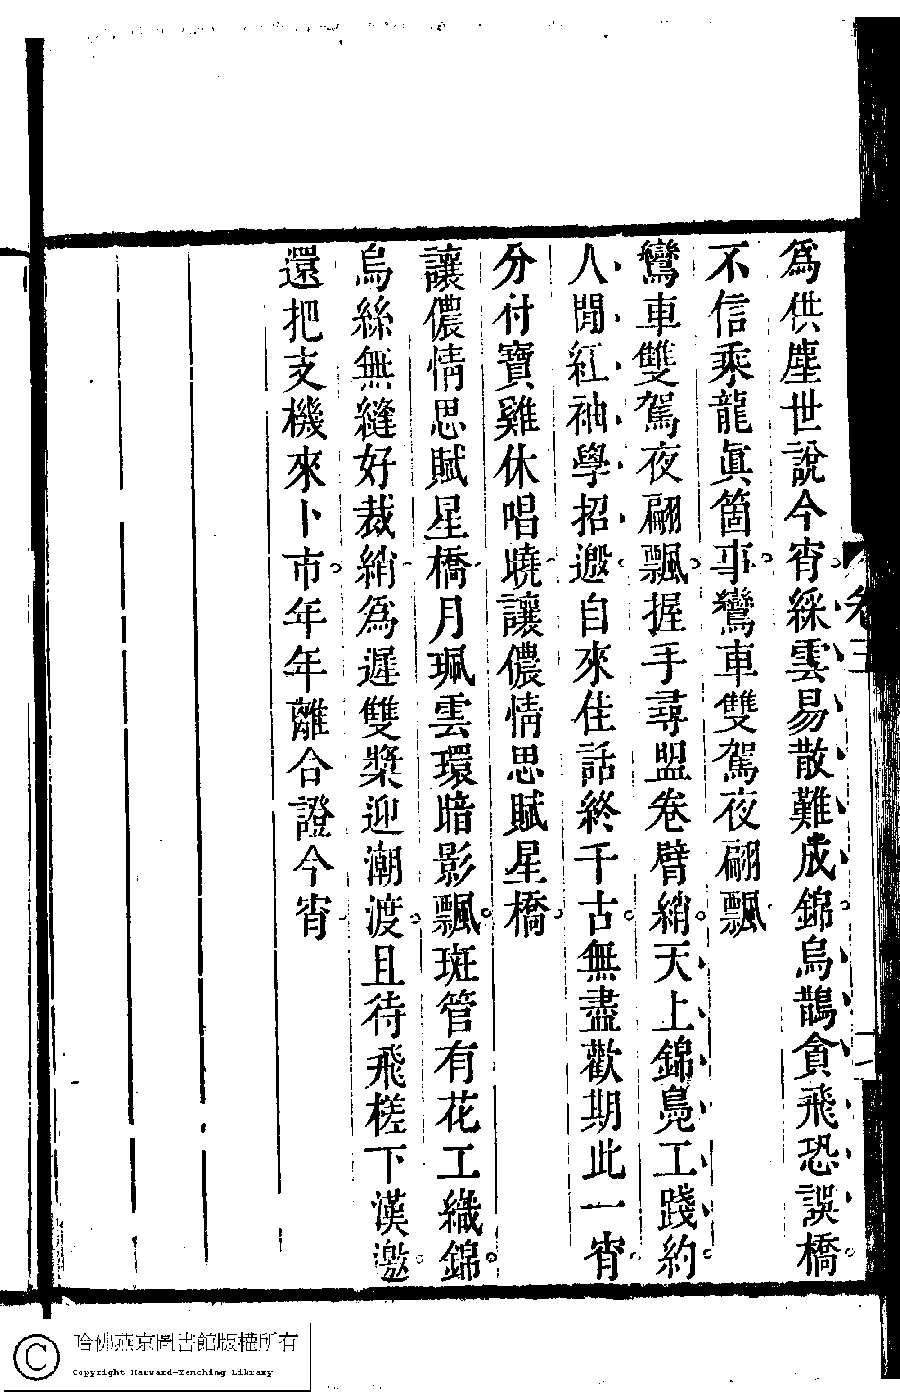 為供塵世說今宵綵雲易散難成錦烏鵲貪飛恐誤橋
不信乘龍眞箇事鸞車雙駕夜翩飄
鸞車雙駕夜翩飄握手尋盟卷臂綃天上錦鳧工踐約
人間紅袖學招邀自來佳話終千古無盡歡期此一宵
分付寶雞休唱曉讓儂情思賦星橋
讓儂情思賦星橋月珮雲環暗影飄斑管有花工織錦
烏絲無縫好裁綃為遲雙槳迎潮渡且待飛槎下漢邀
還把支機來卜市年年離合證今宵
卷五
哈佛燕京圖書館版權所有
Copyright Harvard-Yenching Library